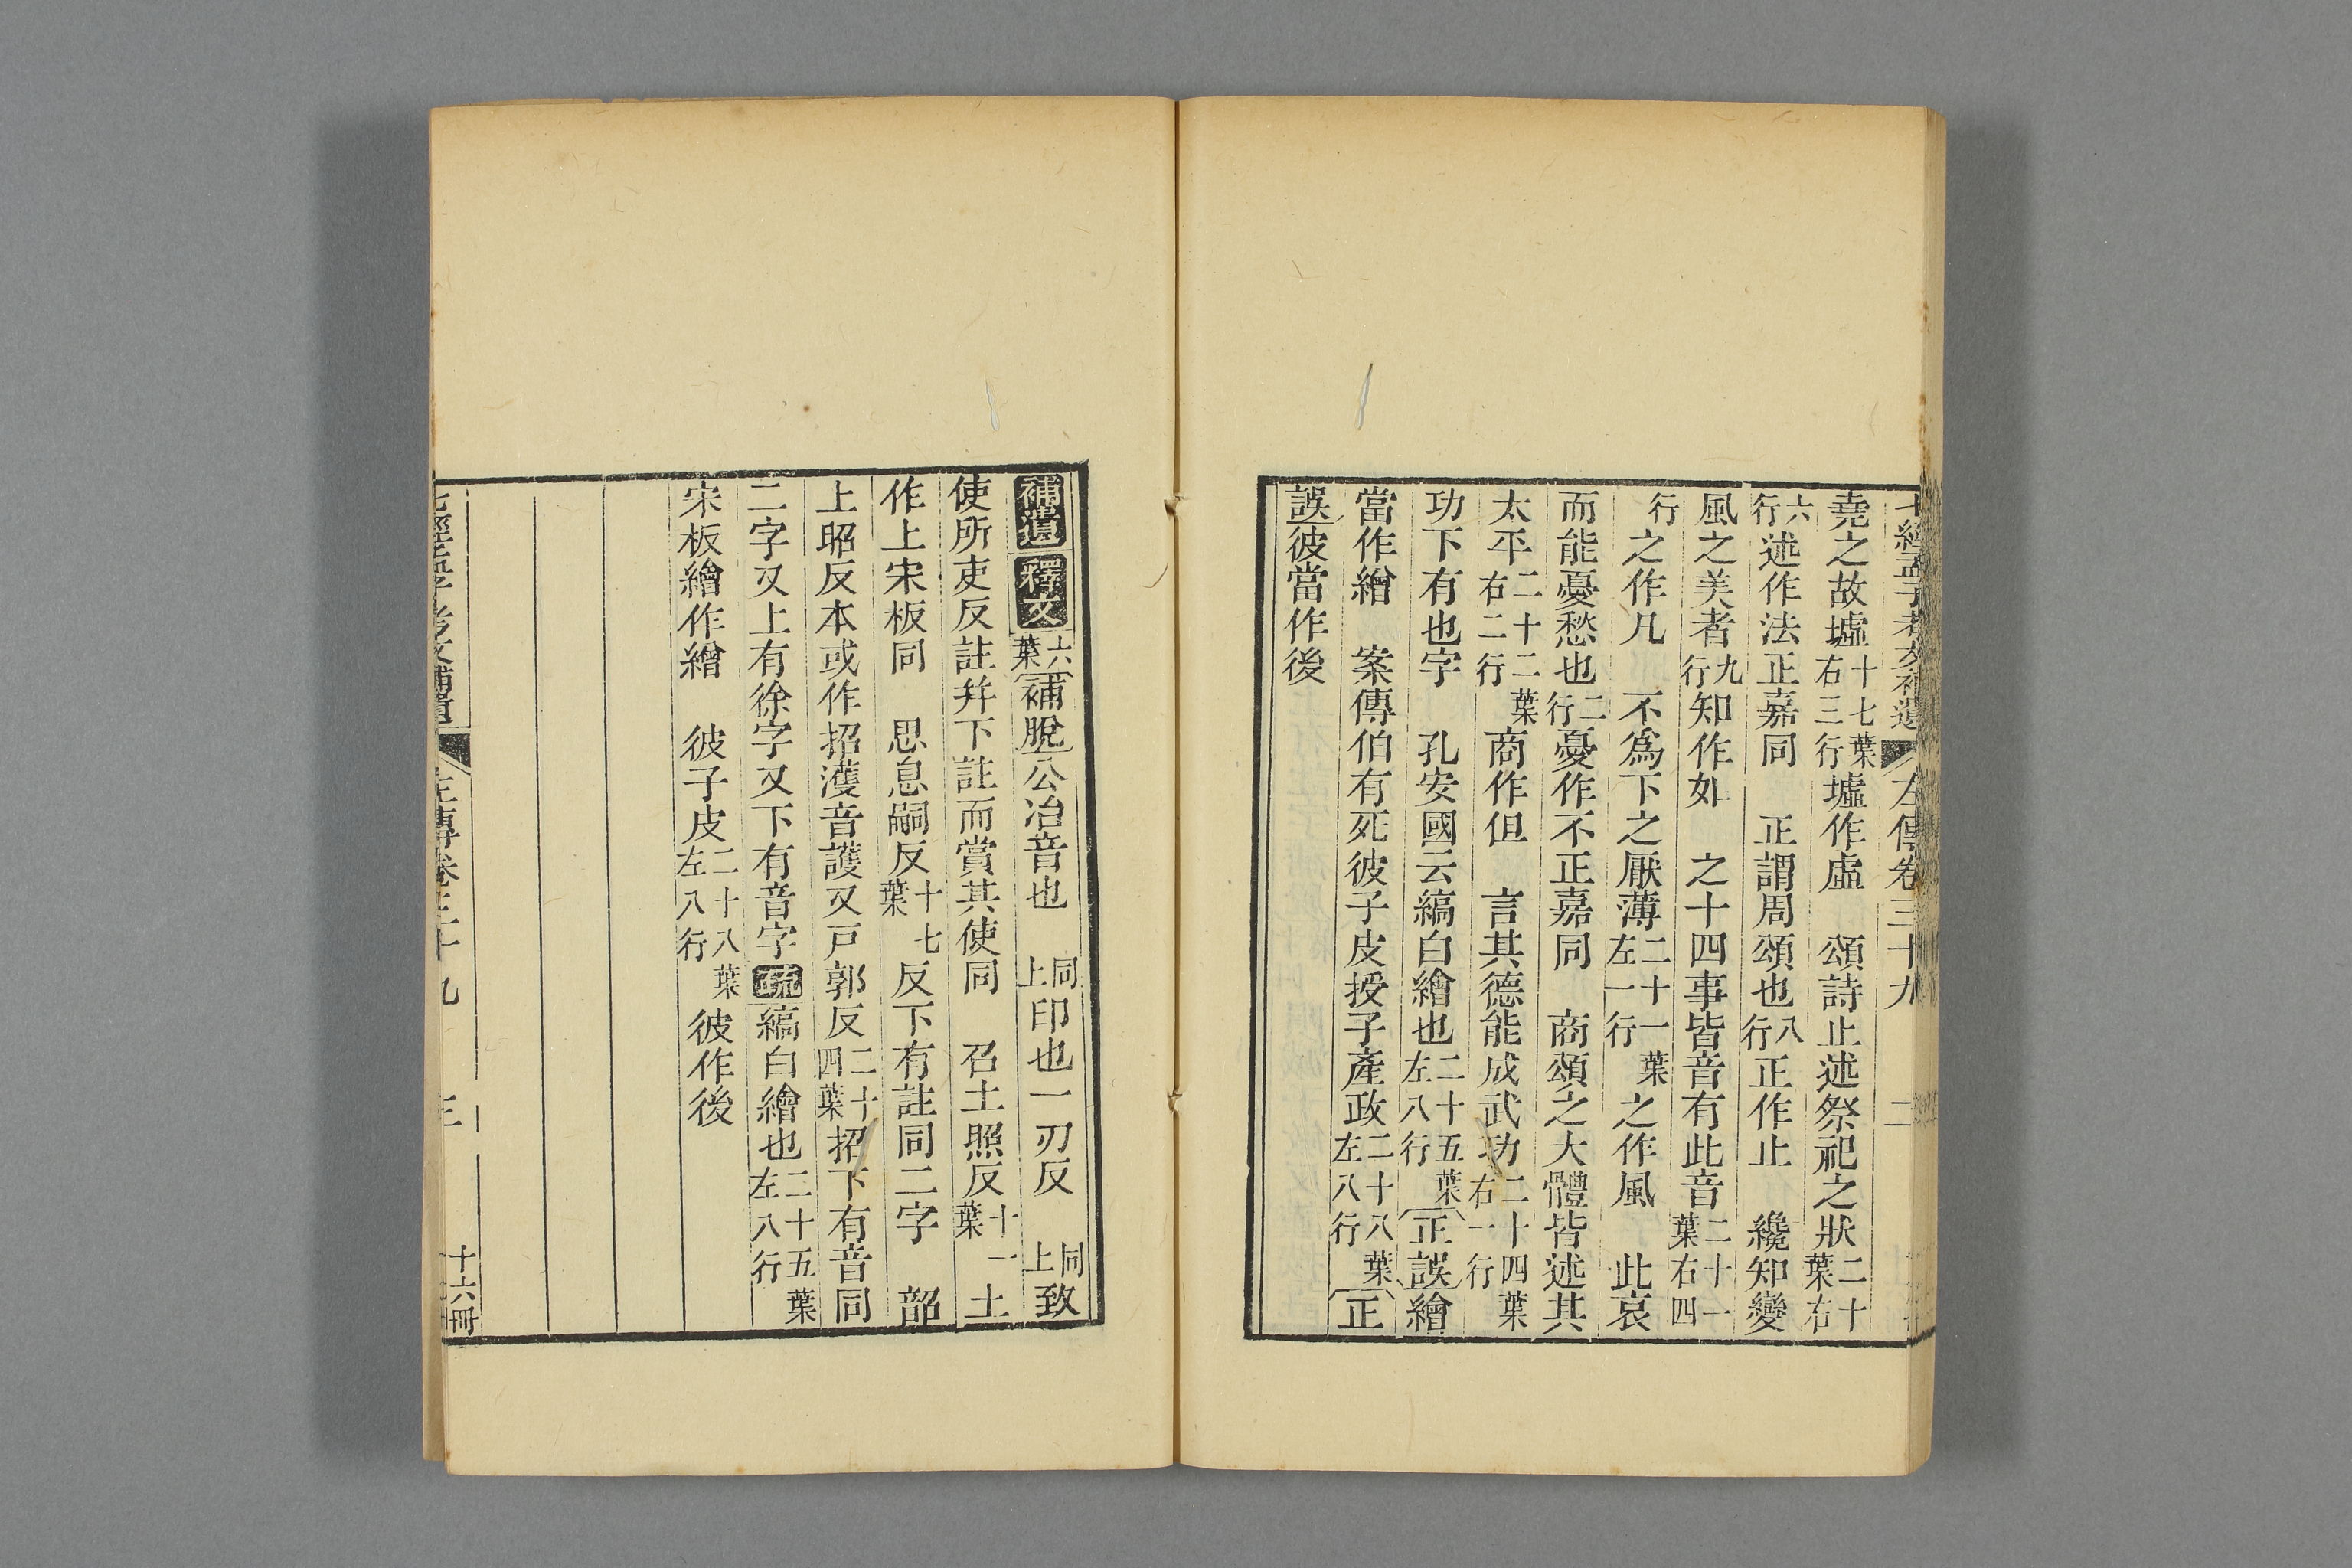 七經孟子考文補遺　左傳卷三十九　二
堯之故墟十七葉右三行墟作虛　頌詩止述祭祀之狀二十葉右
六行述作法正嘉同　正謂周頌也八行正作止　纔知變
風之美者九行知作如　之十四事皆音有此音二十一葉右四
行之作凡　不爲下之厭薄二十一葉左一行之作風　此哀
而能憂愁也二行憂作不正嘉同　商頌之大體皆述其
太平二十二葉右二行商作但　言其德能成武功二十四葉右一行
功下有也字　孔安國云縞白繪也二十五葉左八行正誤繪
當作繒　案傳伯有死彼子皮授子產政二十八葉左八行正
誤彼當作後
補遺釋文六葉補脫公冶音也　同上印也一刃反　同上致
使所吏反註并下註而賞其使同　召土照反十一葉土
作上宋板同　思息嗣反十七葉反下有註同二字　韶
上昭反本或作招濩音護又戸郭反二十四葉招下有音同
二字又上有徐字又下有音字疏縞白繪也二十五葉左八行
宋板繪作繒　彼子皮二十八葉左八行彼作後
七經孟子考文補遺　左傳卷三十九　三　十六冊